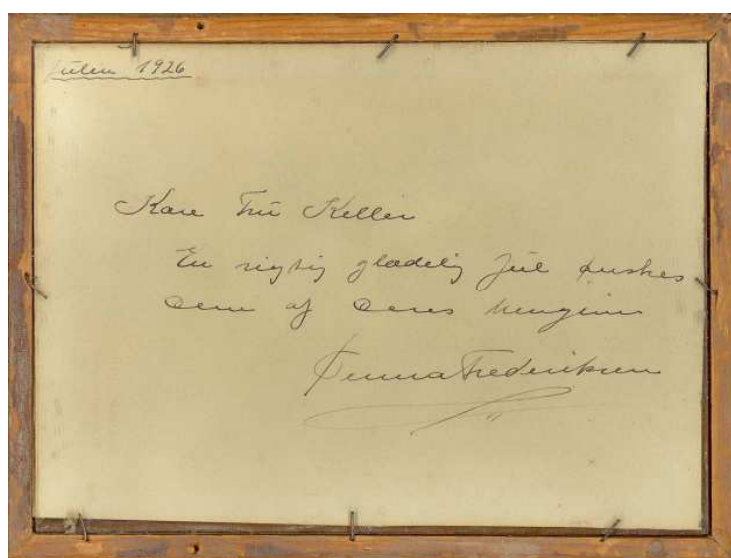 Julen 1926
Kære Fru Keller
En rigtig glædelig Jul ønskes
Dem af Deres hengivne
Frederiksen